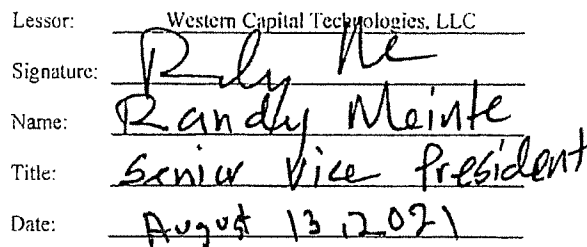 Lessor: Western Capital Technologies, LLC
Signature:
Name: Randy Meinte
Title: Senior Vice President
Date: August 13, 2021